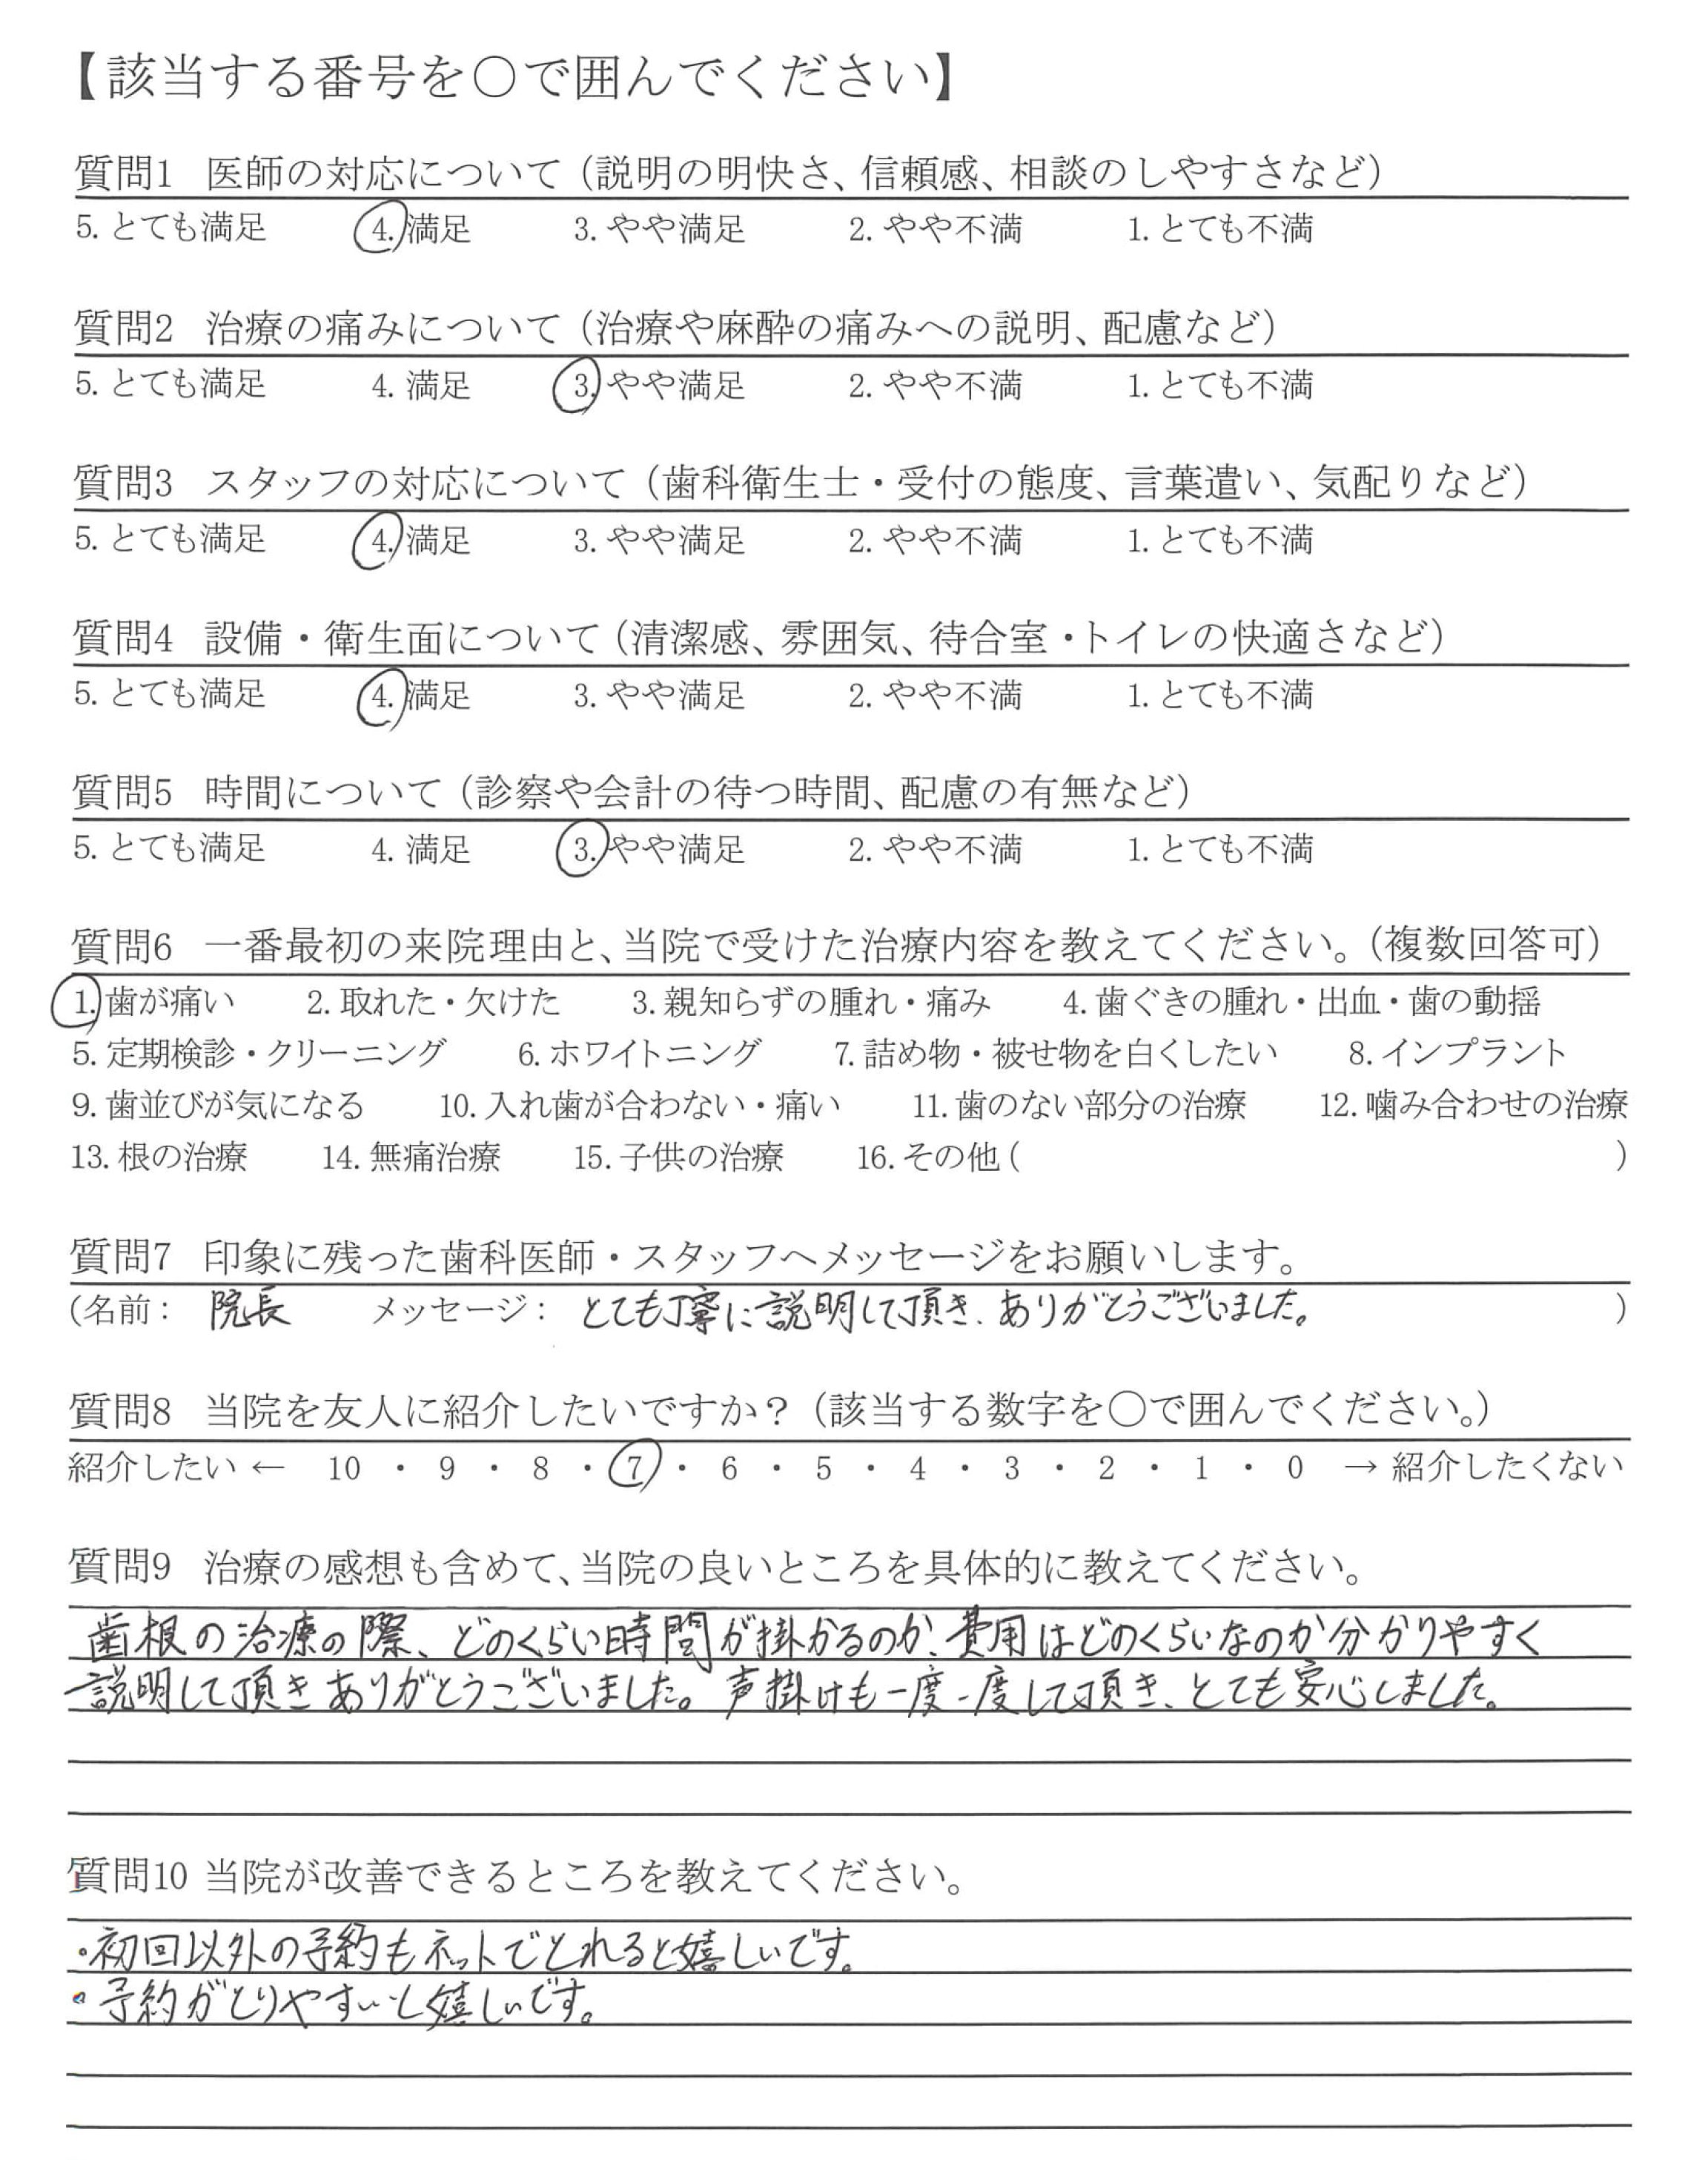 【該当する番号を○で囲んでください】
質問1 医師の対応について（説明の明快さ、信頼感、相談のしやすさなど）
5. とても満足 4. 満足 3. やや満足 2. やや不満 1. とても不満
質問2 治療の痛みについて（治療や麻酔の痛みへの説明、配慮など）
5. とても満足 4. 満足 3. やや満足 2. やや不満 1. とても不満
質問3 スタッフの対応について（歯科衛生士・受付の態度、言葉遣い、気配りなど）
5. とても満足 4. 満足 3. やや満足 2. やや不満 1. とても不満
質問4 設備・衛生面について（清潔感、雰囲気、待合室・トイレの快適さなど）
5. とても満足 4. 満足 3. やや満足 2. やや不満 1. とても不満
質問5 時間について（診察や会計の待つ時間、配慮の有無など）
5. とても満足 4. 満足 3. やや満足 2. やや不満 1. とても不満
質問6 一番最初の来院理由と、当院で受けた治療内容を教えてください。（複数回答可）
1. 歯が痛い 2. 取れた・欠けた 3. 親知らずの腫れ・痛み 4. 歯ぐきの腫れ・出血・歯の動揺
5. 定期検診・クリーニング 6. ホワイトニング 7. 詰め物・被せ物を白くしたい 8. インプラント
9. 歯並びが気になる 10. 入れ歯が合わない・痛い 11. 歯のない部分の治療 12. 噛み合わせの治療
13. 根の治療 14. 無痛治療 15. 子供の治療 16. その他（ ）
質問7 印象に残った歯科医師・スタッフへメッセージをお願いします。
（名前： 院長 メッセージ： とても丁寧に説明して頂き、ありがとうございました。 ）
質問8 当院を友人に紹介したいですか？（該当する数字を○で囲んでください。）
紹介したい ← 10 ・ 9 ・ 8 ・ 7 ・ 6 ・ 5 ・ 4 ・ 3 ・ 2 ・ 1 ・ 0 → 紹介したくない
質問9 治療の感想も含めて、当院の良いところを具体的に教えてください。
歯根の治療の際、どのくらい時間が掛かるのか、費用はどのくらいなのか分かりやすく
説明して頂きありがとうございました。声掛けも一度一度して頂き、とても安心しました。
質問10 当院が改善できるところを教えてください。
・初回以外の予約もネットでとれると嬉しいです。
・予約がとりやすいと嬉しいです。